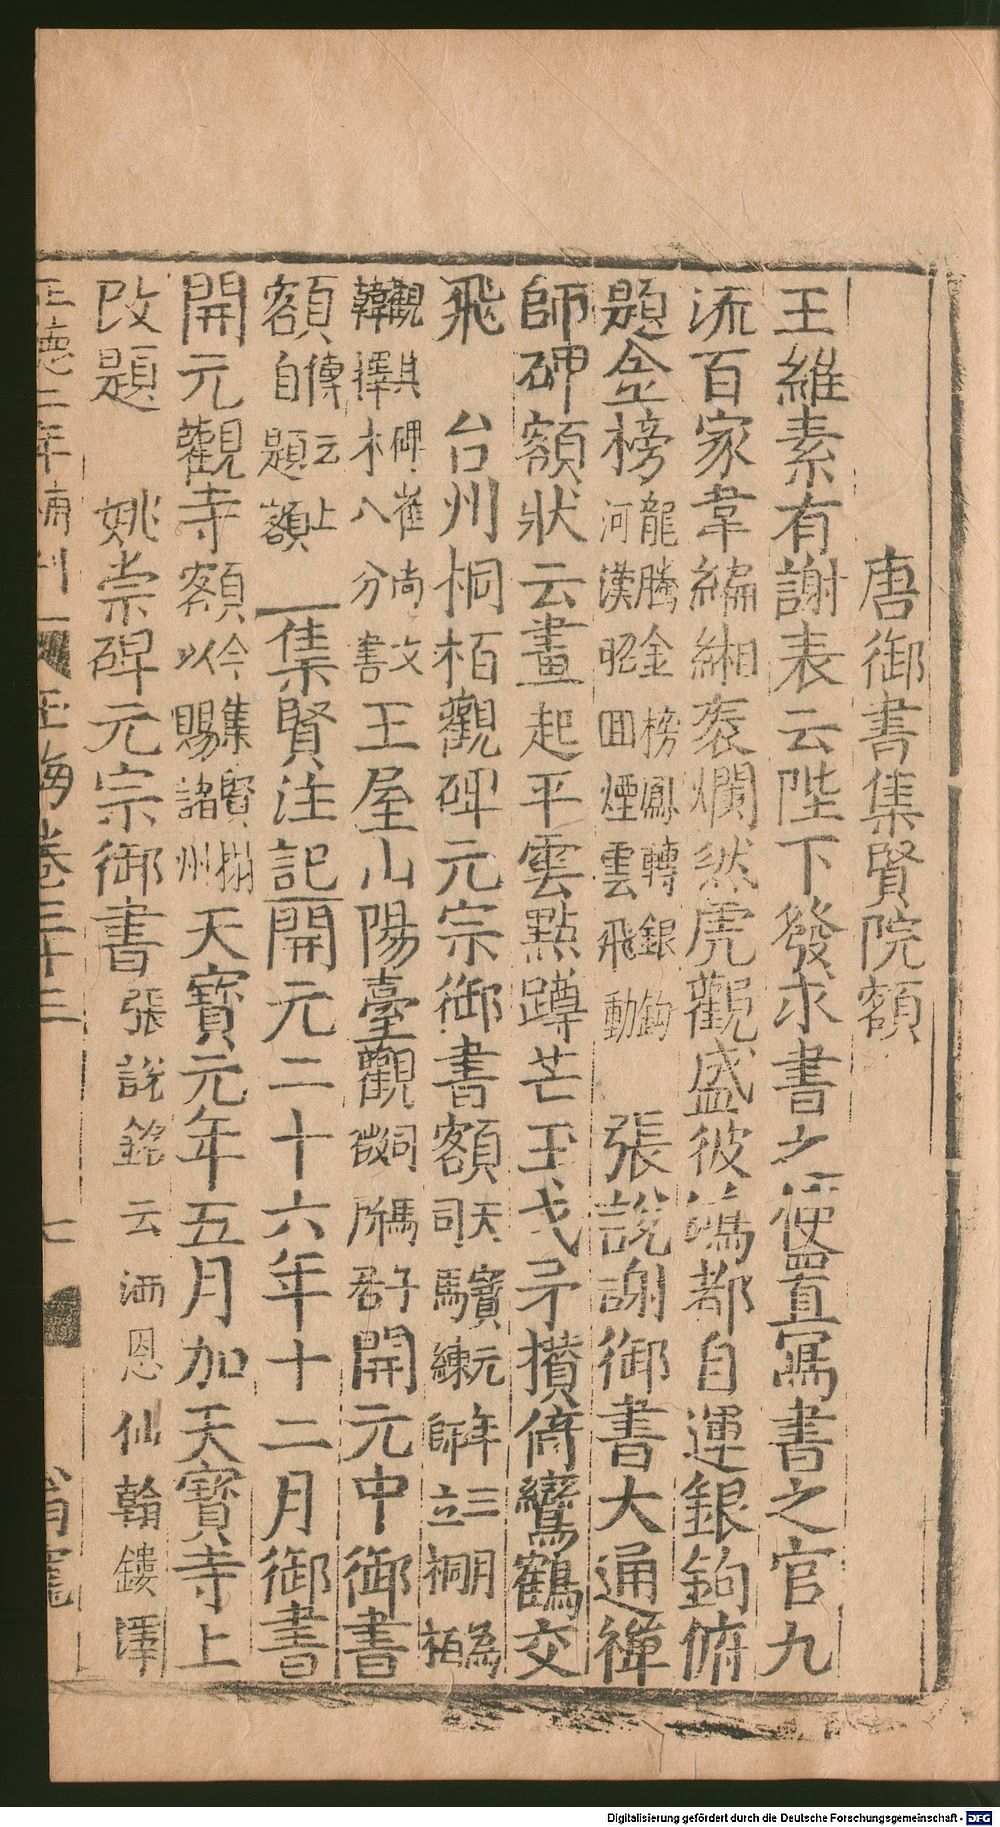 唐御書集賢院額
王維素有謝表云陛下發求書之使置寫書之官九
流百家韋編緗袠爛然虎觀盛彼鴻都自運銀鉤俯
題金榜龍騰金榜鳳轉銀鉤河漢昭回煙雲飛動 張說謝御書大通禪
師碑額狀云畫起平雲點蹲芒玉戈矛攅倚鸞鶴交
飛 台州桐栢觀碑元宗御書額天寶元年三朋為司馬練師立桐栢
觀其碑崔尚文韓擇木八分書王屋山陽臺觀司馬子微所君開元中御書
額傳云上自題額 集賢注記開元二十六年十二月御書
開元觀寺額今集賢搨以賜諸州天寶元年五月加天寶寺上
改題 姚崇碑元宗御書張說銘云洒恩仙翰鏤澤
正德二年補刊 玉海卷三十三 七
Digitalisierung gefördert durch die Deutsche Forschungsgemeinschaft - DFG